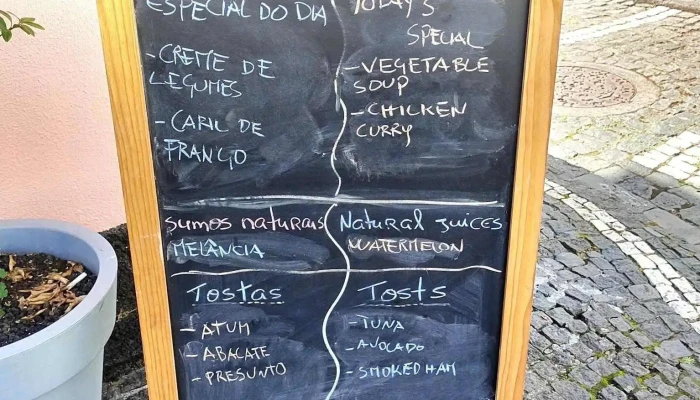 ESPECIAL DO DIA
- CREME DE
LEGUMES
- CARIL DE
FRANGO
TODAY'S
SPECIAL
- VEGETABLE
SOUP
- CHICKEN
CURRY
Sumos naturais
MELÂNCIA
Natural Juices
WATERMELON
Tostas
- ATUM
- ABACATE
- PRESUNTO
Tosts
- TUNA
- AVOCADO
- SMOKED HAM